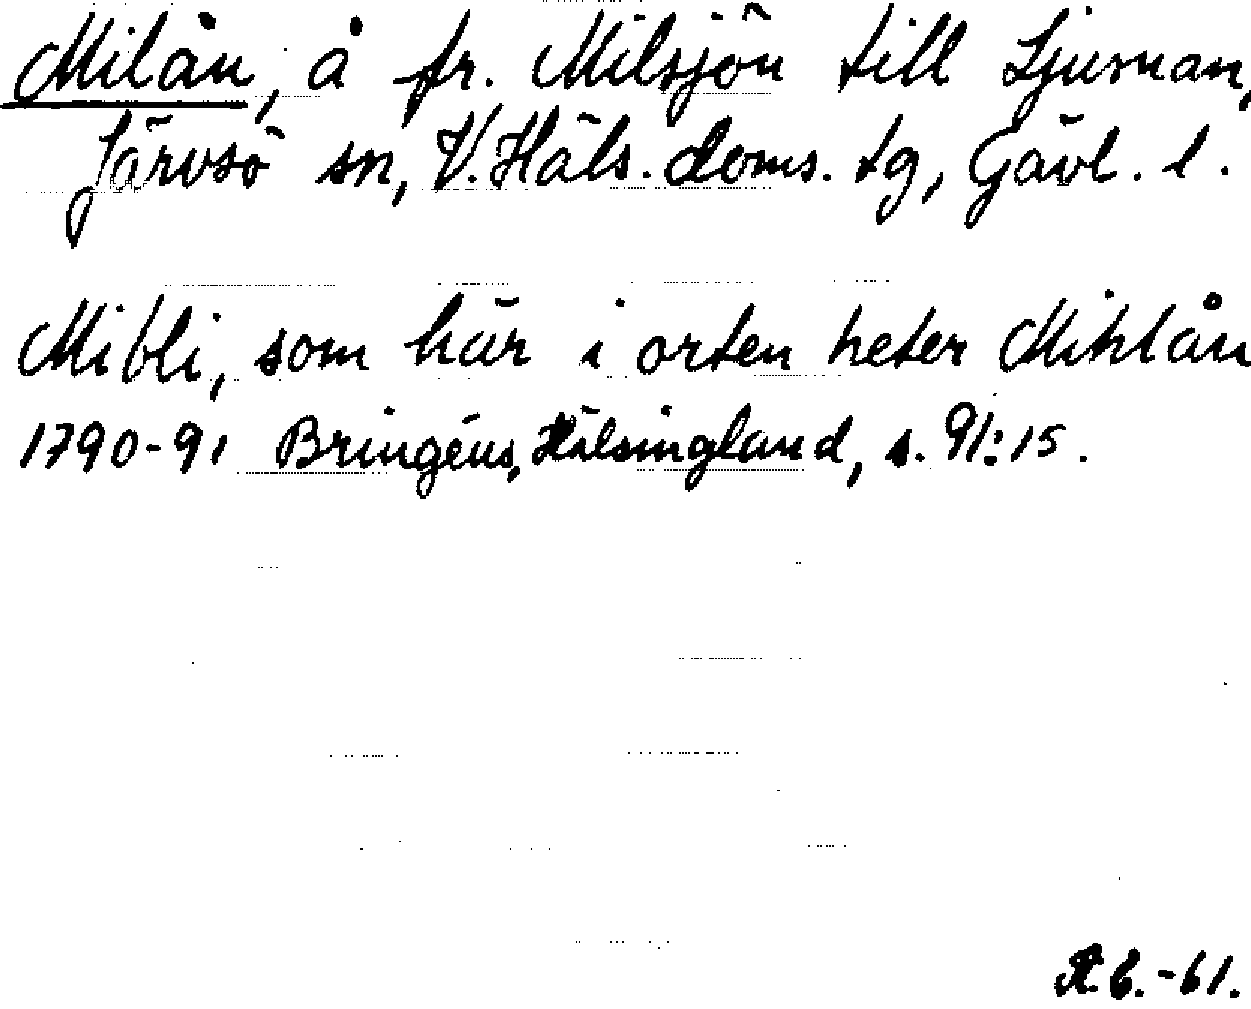 Milån, å fr. Milsjön till Ljusnan,
Järvsö sn, V. Häls. doms. tg, Gävl. l.
Mibli, som här i orten heter Mihlån
1790-91 Bringéus, Hälsingland, s. 91:15.
R. B. -61.